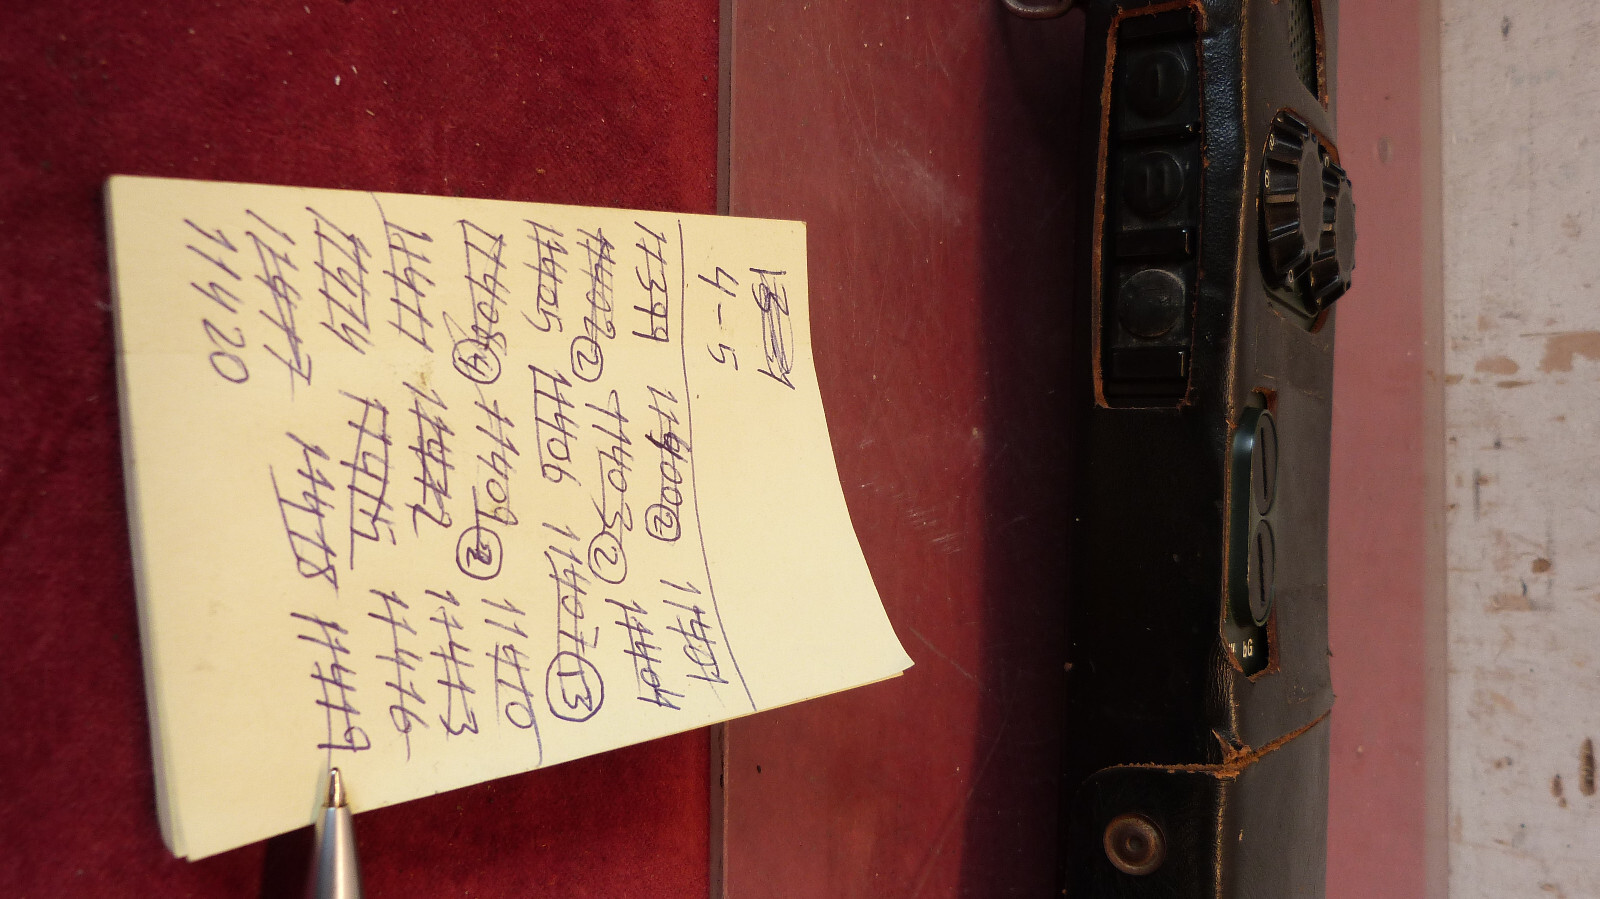 4-5
11399 11400 ② 11401
11402 ② 11403 ② 11404
11405 11406 11407 ⑬
11408 ④ 11409 ② 11410
11411 11412 11413
11414 11415 11416
11417 11418 11419
11420
bG